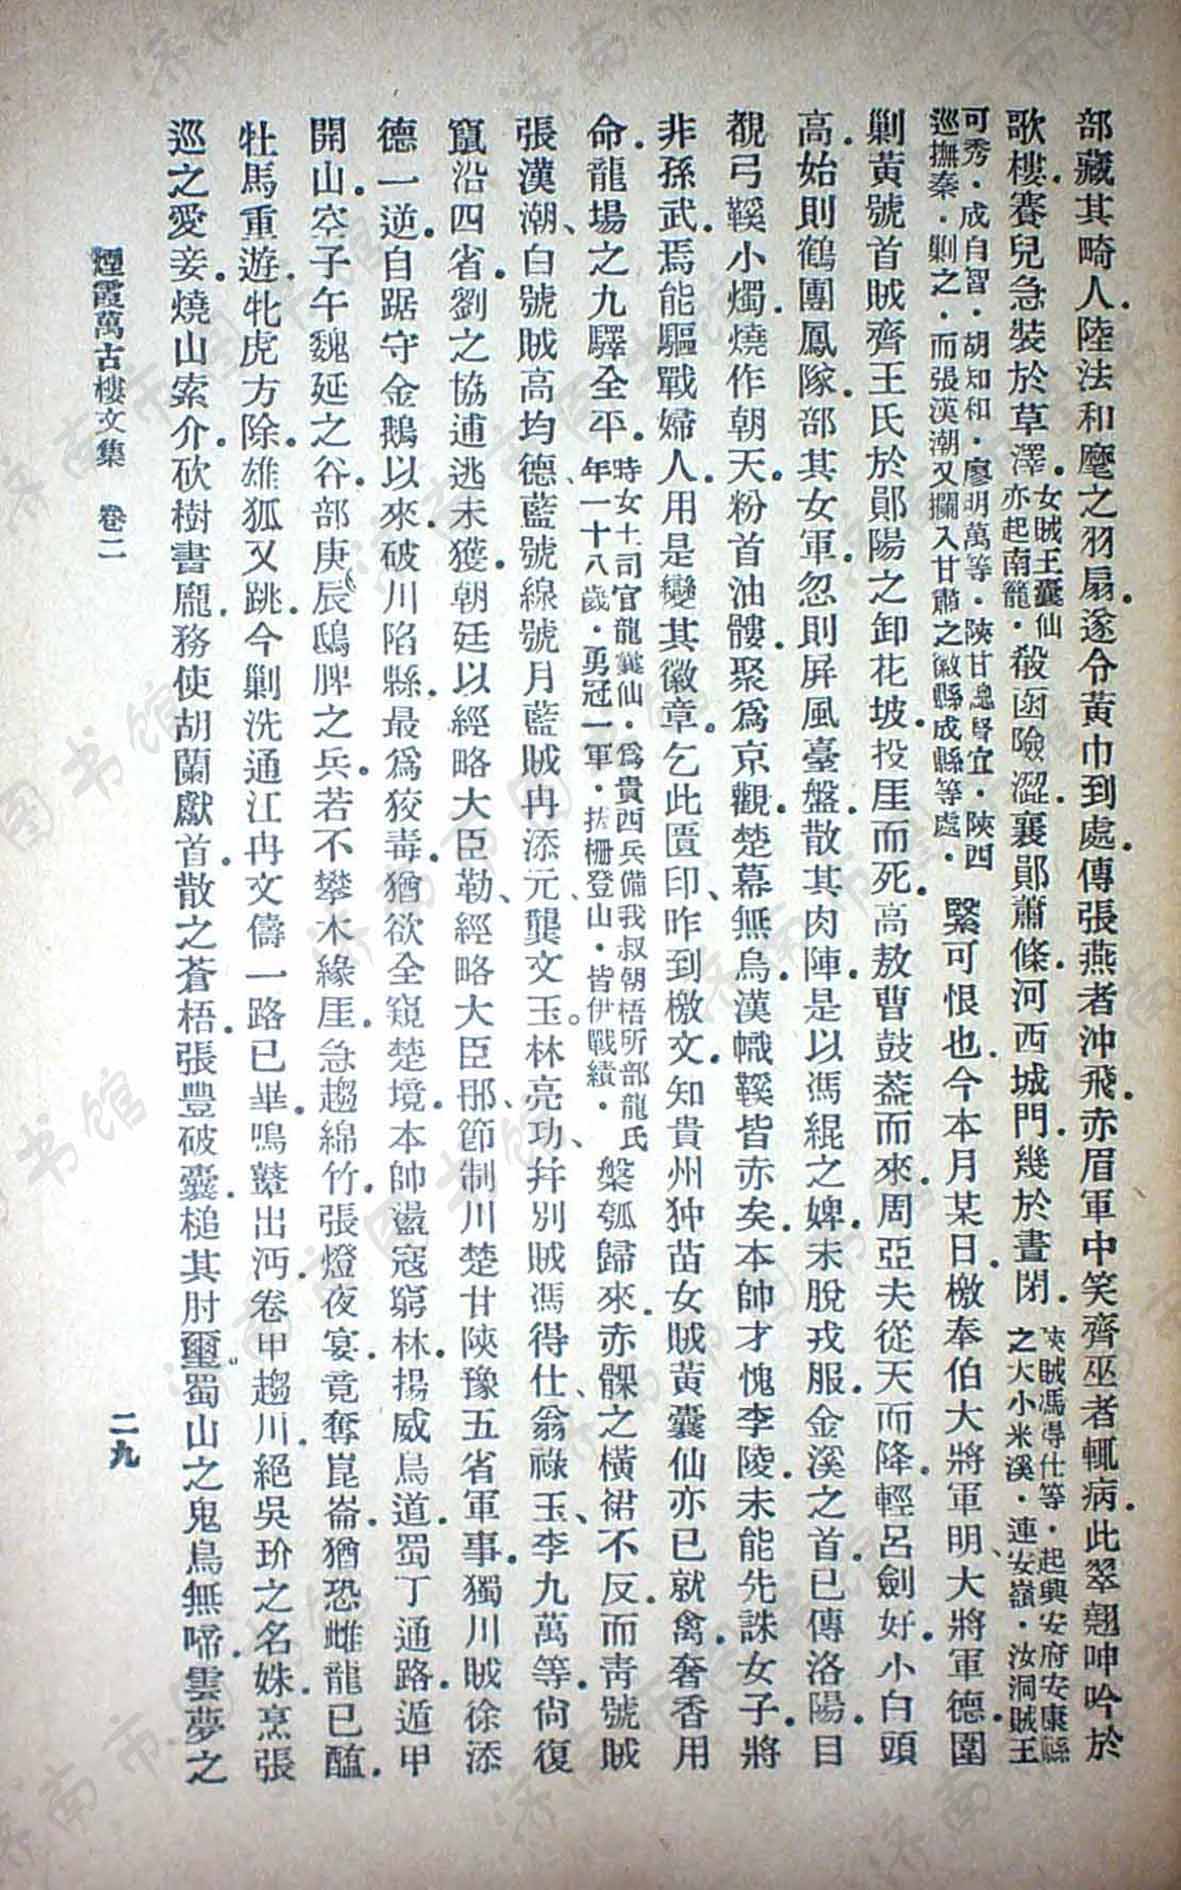 部藏其畸人陸法和麾之羽扇遂令黃巾到處傳張燕者沖飛赤眉軍中笑齊巫者輒病此翠翹呻吟於
歌樓賽兒急裝於草澤女賊王囊仙亦起南籠殽函險澀襄鄖蕭條河西城門幾於晝閉陝賊馮得仕等起興安府安康縣之大小米溪連安嶺汝洞賊王
可秀成自智胡知和廖明萬等陝甘總督宜陝西巡撫秦剿之而張漢潮又攔入甘肅之徽縣成縣等處緊可恨也今本月某日檄奉伯大將軍明大將軍德圍
剿黃號首賊齊王氏於鄖陽之卸花坡投厓而死高敖曹鼓葢而來周亞夫從天而降輕呂劍好小白頭
高始則鶴團鳳隊部其女軍忽則屏風臺盤散其肉陣是以馮緄之婢未脫戎服金溪之首已傳洛陽目
覩弓鞵小燭燒作朝天粉首油髏聚爲京觀楚幕無烏漢幟鞵皆赤矣本帥才愧李陵未能先誅女子將
非孫武焉能驅戰婦人用是變其徽章乞此匱印昨到檄文知貴州狆苗女賊黃囊仙亦已就禽奢香用
命龍場之九驛全平時女土司官龍囊仙爲貴西兵備我叔朝梧所部龍氏年一十八歲勇冠一軍扶柵登山皆伊戰績槃瓠歸來赤髁之橫裙不反而靑號賊
張漢潮白號賊高均德藍號線號月藍賊冉添元龔文玉林亮功幷別賊馮得仕翁祿玉李九萬等尙復
竄沿四省劉之協逋逃未獲朝廷以經略大臣勒經略大臣那節制川楚甘陝豫五省軍事獨川賊徐添
德一逆自踞守金鵝以來破川陷縣最爲狡毒猶欲全窺楚境本帥盪寇窮林揚威鳥道蜀丁通路遁甲
開山空子午魏延之谷部庚辰鴟脾之兵若不攀木緣厓急趨綿竹張燈夜宴竟奪崑崙猶恐雌龍已醢
牡馬重遊牝虎方除雄狐又跳今剿洗通江冉文儔一路已畢鳴鼙出沔卷甲趨川絕吳玠之名姝烹張
巡之愛妾燒山索介砍樹書龐務使胡蘭獻首散之蒼梧張豐破囊槌其肘璽蜀山之鬼鳥無啼雲夢之
煙霞萬古樓文集 卷二 二九